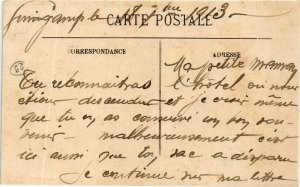 Guingamp le 18 1913
CARTE POSTALE
CORRESPONDANCE
ADRESSE
Ma petite maman
Tu reconnaitras l'hôtel ou nous
étions descendus et je crois même
que tu en as conservé un bon sou-
venir malheureusement c'est
ici aussi que ton sac a disparu
je continue sur ma lettre